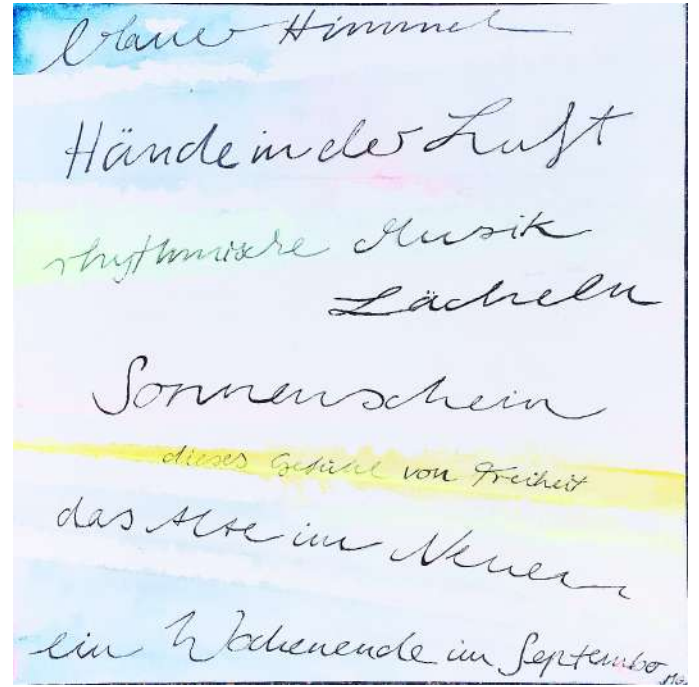 blauer Himmel
Hände in der Luft
rhythmische Musik
Lächeln
Sonnenschein
dieses Gefühl von Freiheit
das Alte im Neuen
ein Wochenende im September